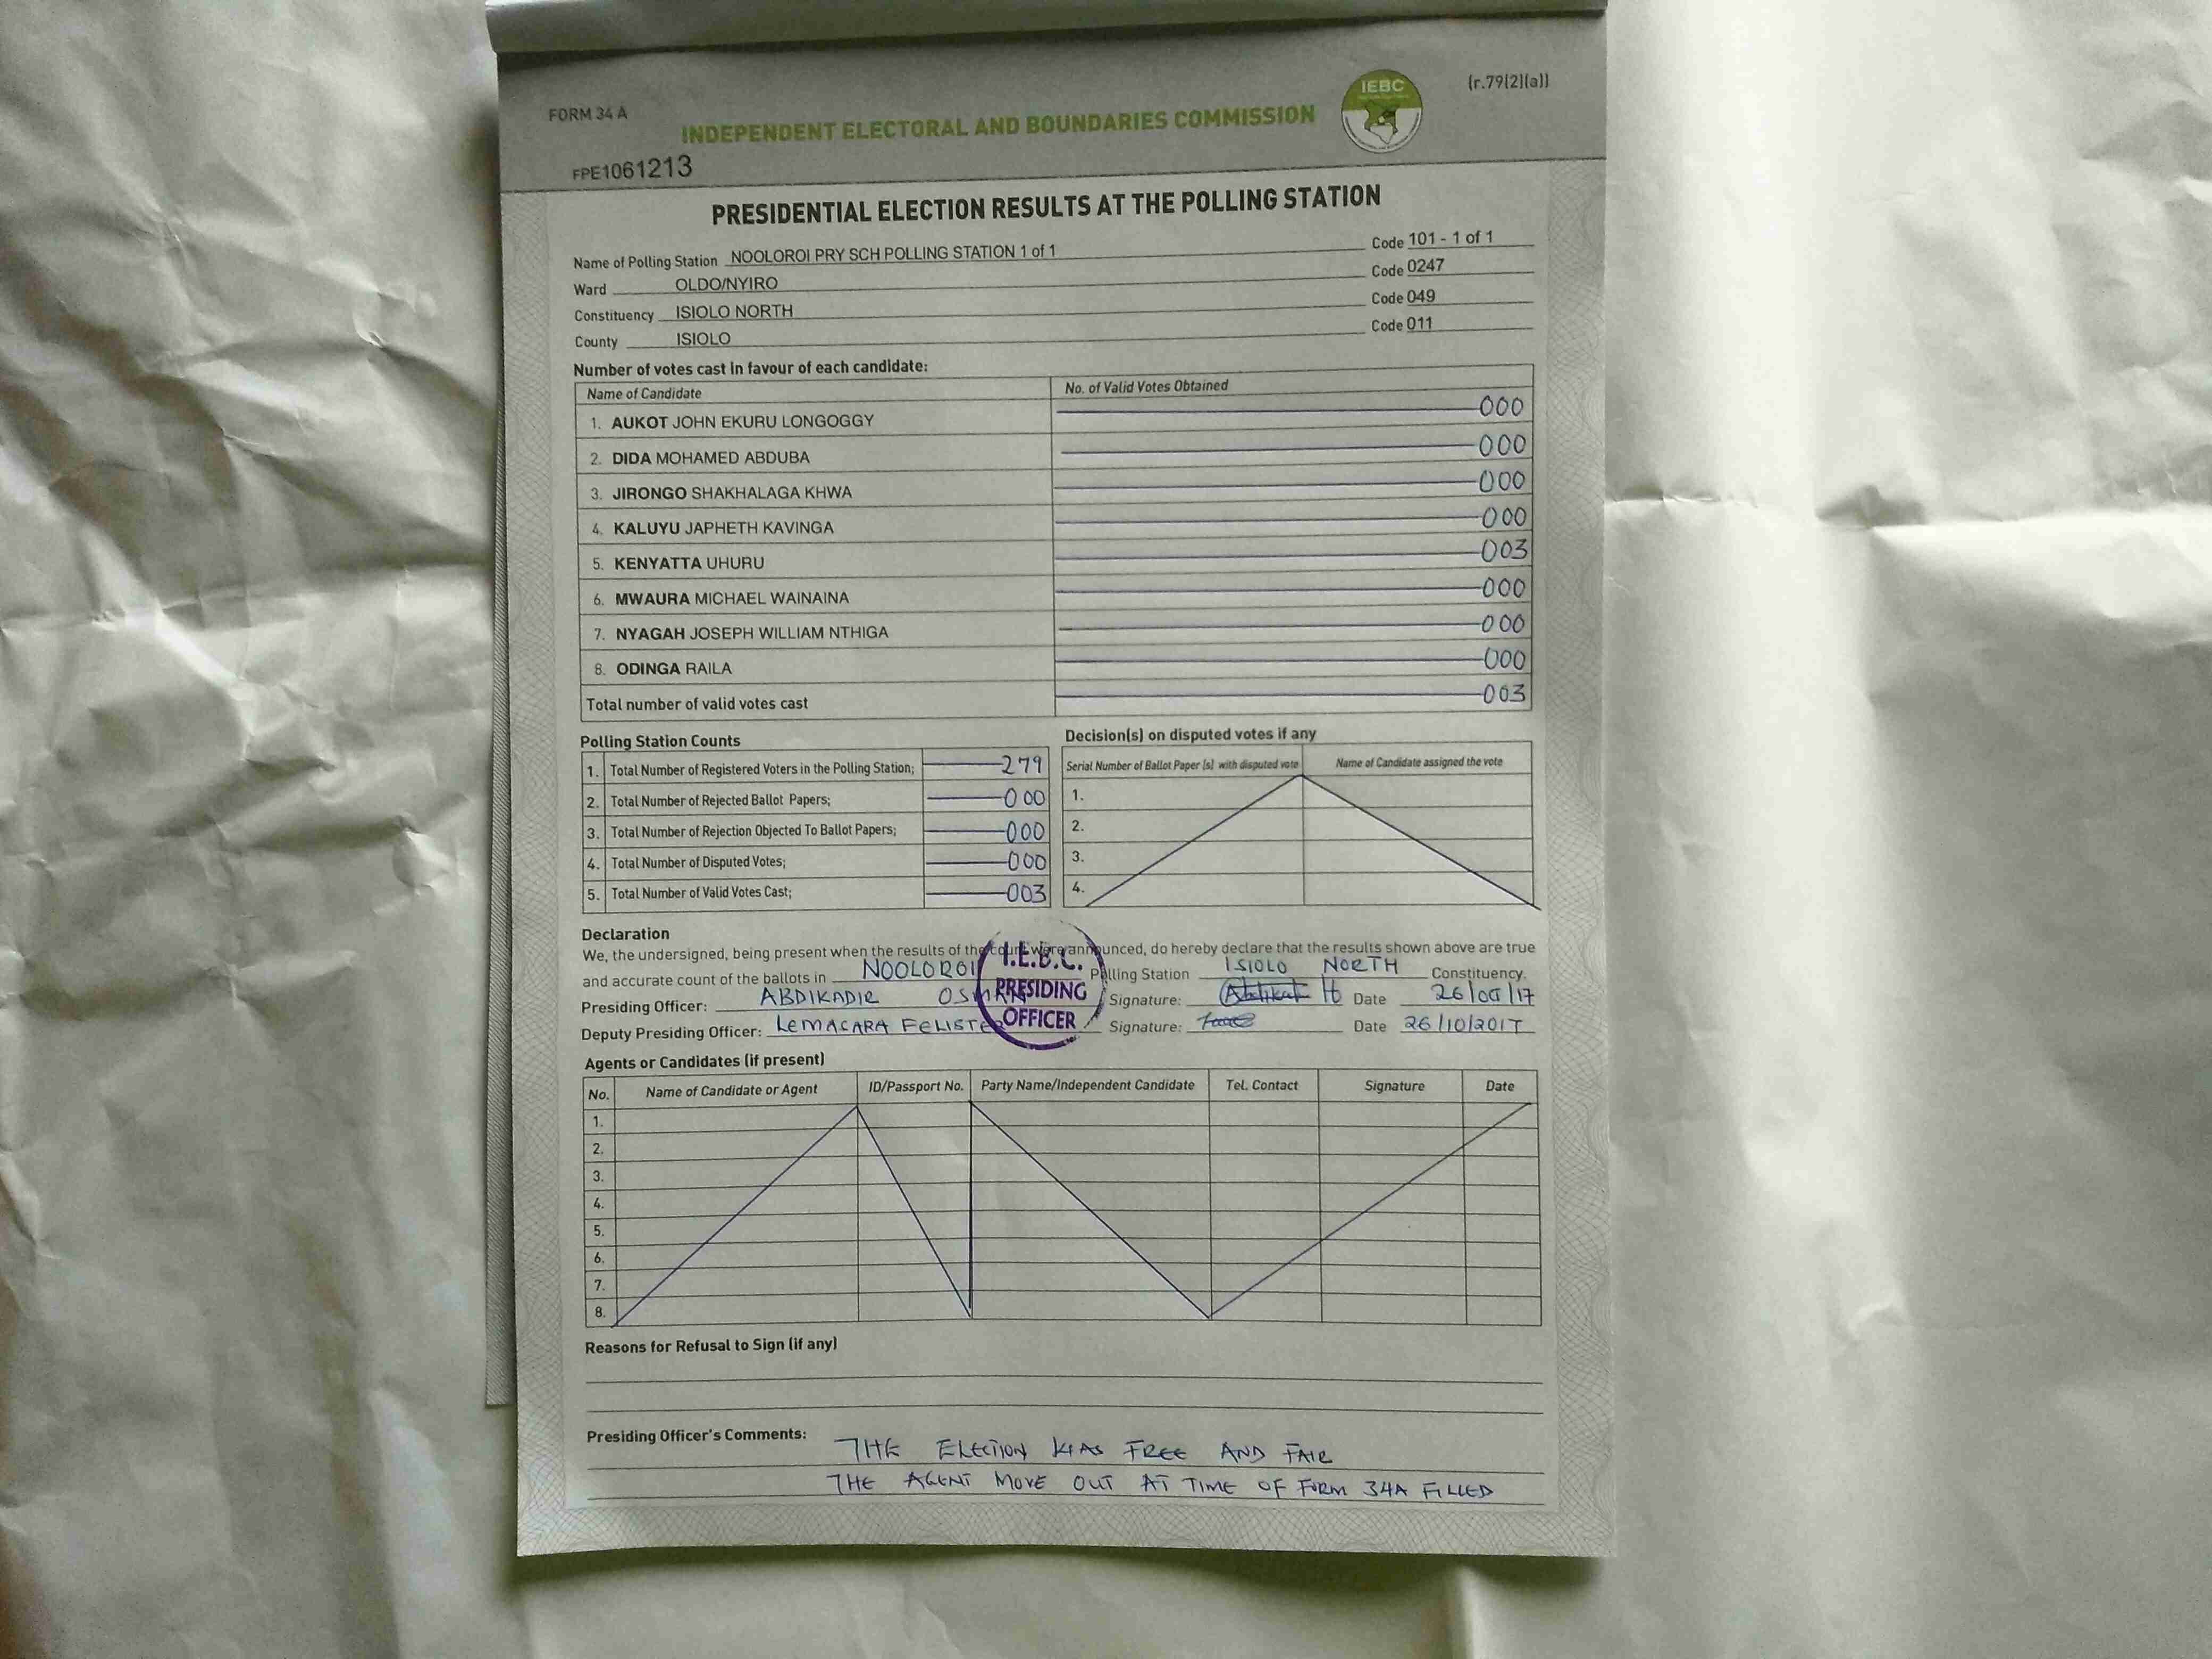 FORM 34 A
INDEPENDENT ELECTORAL AND BOUNDARIES COMMISSION
IEBC
(r.79(2)(a))
FPE1061213
PRESIDENTIAL ELECTION RESULTS AT THE POLLING STATION
Name of Polling Station NOOLOROI PRY SCH POLLING STATION 1 of 1 Code 101 - 1 of 1
Ward OLDO/NYIRO Code 0247
Constituency ISIOLO NORTH Code 049
County ISIOLO Code 011
Number of votes cast in favour of each candidate:
Name of Candidate No. of Valid Votes Obtained
1. AUKOT JOHN EKURU LONGOGGY 000
2. DIDA MOHAMED ABDUBA 000
3. JIRONGO SHAKHALAGA KHWA 000
4. KALUYU JAPHETH KAVINGA 000
5. KENYATTA UHURU 003
6. MWAURA MICHAEL WAINAINA 000
7. NYAGAH JOSEPH WILLIAM NTHIGA 000
8. ODINGA RAILA 000
Total number of valid votes cast 003
Polling Station Counts
1. Total Number of Registered Voters in the Polling Station; 279
2. Total Number of Rejected Ballot Papers; 000
3. Total Number of Rejection Objected To Ballot Papers; 000
4. Total Number of Disputed Votes; 000
5. Total Number of Valid Votes Cast; 003
Decision(s) on disputed votes if any
Serial Number of Ballot Paper (s) with disputed vote Name of Candidate assigned the vote
1.
2.
3.
4.
Declaration
We, the undersigned, being present when the results of the count were announced, do hereby declare that the results shown above are true
and accurate count of the ballots in NOOLOROI Polling Station ISIOLO NORTH Constituency.
Presiding Officer: ABDIKADIR Signature: Date
Deputy Presiding Officer: Signature: Date 26/10/2017
I.E.B.C.
PRESIDING
OFFICER
Agents or Candidates (if present)
No. Name of Candidate or Agent ID/Passport No. Party Name/Independent Candidate Tel. Contact Signature Date
1.
2.
3.
4.
5.
6.
7.
8.
Reasons for Refusal to Sign (if any)
Presiding Officer's Comments: THE ELECTION WAS FREE AND FAIR
THE AGENT MOVE OUT AT TIME OF FORM 34A FILLED